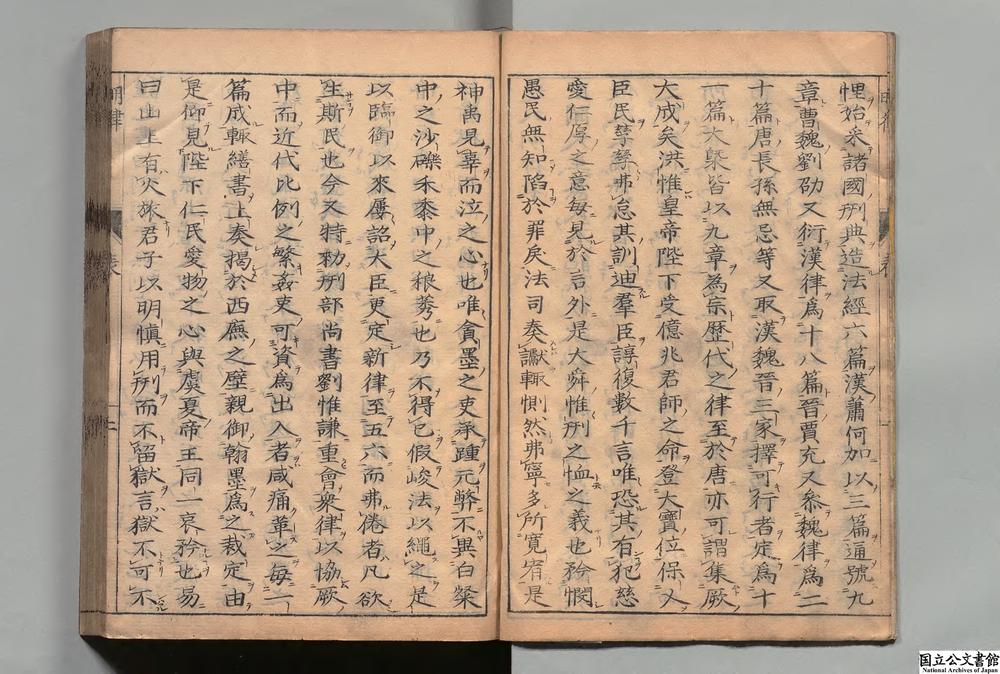 悝始采諸國刑典造法經六篇漢蕭何加以三篇通號九
章曹魏劉劭又衍漢律爲十八篇晉賈充又叅魏律爲二
十篇唐長孫無忌等又取漢魏晉三家擇可行者定爲十
二篇大槩皆以九章為宗歷代之律至於唐亦可謂集厥
大成矣洪惟皇帝陛下受億兆君師之命登大寶位保乂
臣民孳孳弗怠其訓迪羣臣諄復數千言唯恐其有犯慈
愛仁厚之意每見於言外是大舜惟刑之恤之義也矜憫
愚民無知陷於罪戾法司奏讞輒惻然弗寧多所寬宥是
神禹見辜而泣之心也唯貪墨之吏承踵元弊不異白粲
中之沙礫禾黍中之稂莠也乃不得已假峻法以繩之是
以臨御以來屢詔大臣更定新律至五六而弗倦者凡欲
生斯民也今又特勑刑部尚書劉惟謙重會衆律以協厥
中而近代比例之繁姦吏可資為出入者咸痛革之每一
篇成輒繕書上奏揭於西廡之壁親御翰墨爲之裁定由
是仰見陛下仁民愛物之心與虞夏帝王同一哀矜也易
曰山上有火旅君子以明愼用刑而不留獄言獄不可不
明律
表
二
国立公文書館
National Archives of Japan